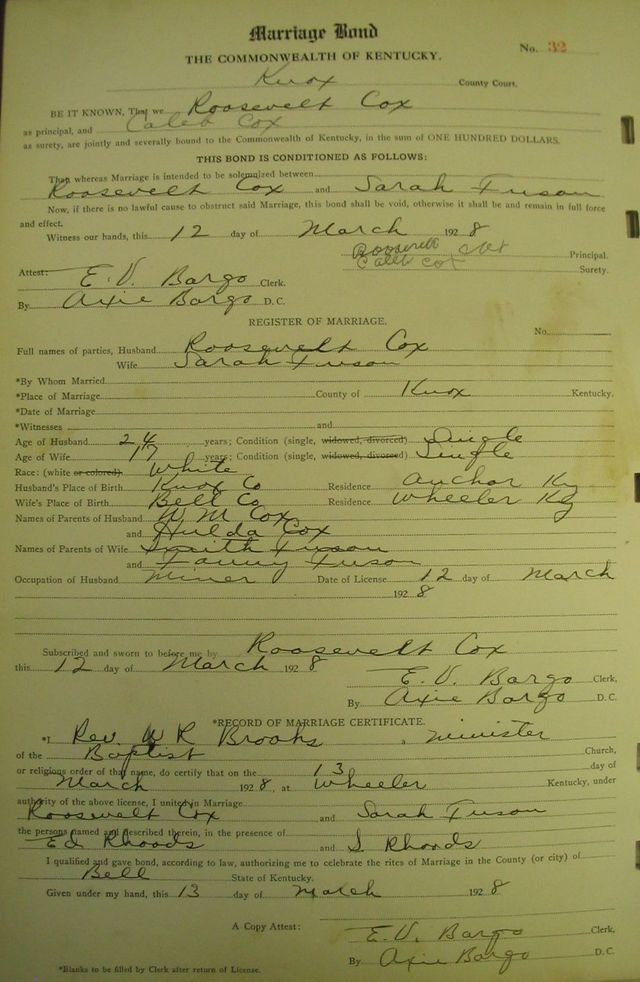 Marriage Bond
No. 32
THE COMMONWEALTH OF KENTUCKY.
Knox County Court.
BE IT KNOWN, That we Roosevelt Cox
as principal, and Caleb Cox
as surety, are jointly and severally bound to the Commonwealth of Kentucky, in the sum of ONE HUNDRED DOLLARS.
THIS BOND IS CONDITIONED AS FOLLOWS:
That whereas Marriage is intended to be solemnized between
Roosevelt Cox and Sarah Fuson
Now, if there is no lawful cause to obstruct said Marriage, this bond shall be void, otherwise it shall be and remain in full force
and effect.
Witness our hands, this 12 day of March 1928
Roosevelt Cox Principal.
Caleb Cox Surety.
Attest: E. V. Bargo Clerk.
By Axie Bargo D. C.
REGISTER OF MARRIAGE.
No.
Full names of parties, Husband Roosevelt Cox
Wife Sarah Fuson
*By Whom Married
*Place of Marriage County of Knox Kentucky.
*Date of Marriage
*Witnesses and
Age of Husband 24 years; Condition (single, widowed, divorced) Single
Age of Wife 17 years; Condition (single, widowed, divorced) Single
Race: (white or colored). White
Husband's Place of Birth Knox Co Residence Anchor Ky
Wife's Place of Birth Bell Co Residence Wheeler Ky
Names of Parents of Husband W M Cox
and Hulda Cox
Names of Parents of Wife Smith Fuson
and Fanny Fuson
Occupation of Husband Miner Date of License 12 day of March
1928
Subscribed and sworn to before me by Roosevelt Cox
this 12 day of March 1928
E. V. Bargo Clerk,
By Axie Bargo D. C.
*RECORD OF MARRIAGE CERTIFICATE.
*I Rev. W R Brooks, Minister
of the Baptist Church,
or religious order of that name, do certify that on the 13 day of
March 1928, at Wheeler Kentucky, under
authority of the above license, I united in Marriage
Roosevelt Cox and Sarah Fuson
the persons named and described therein, in the presence of
Ed Rhoads and S Rhoads
I qualified and gave bond, according to law, authorizing me to celebrate the rites of Marriage in the County (or city) of
Bell State of Kentucky.
Given under my hand, this 13 day of March 1928
A Copy Attest: E. V. Bargo Clerk,
By Axie Bargo D. C.
*Blanks to be filled by Clerk after return of License.